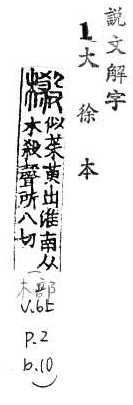 說文解字
1 大徐本
樧 似茱萸出淮南从
木殺聲所八切
(木部
V.6上
P.2
b.10)